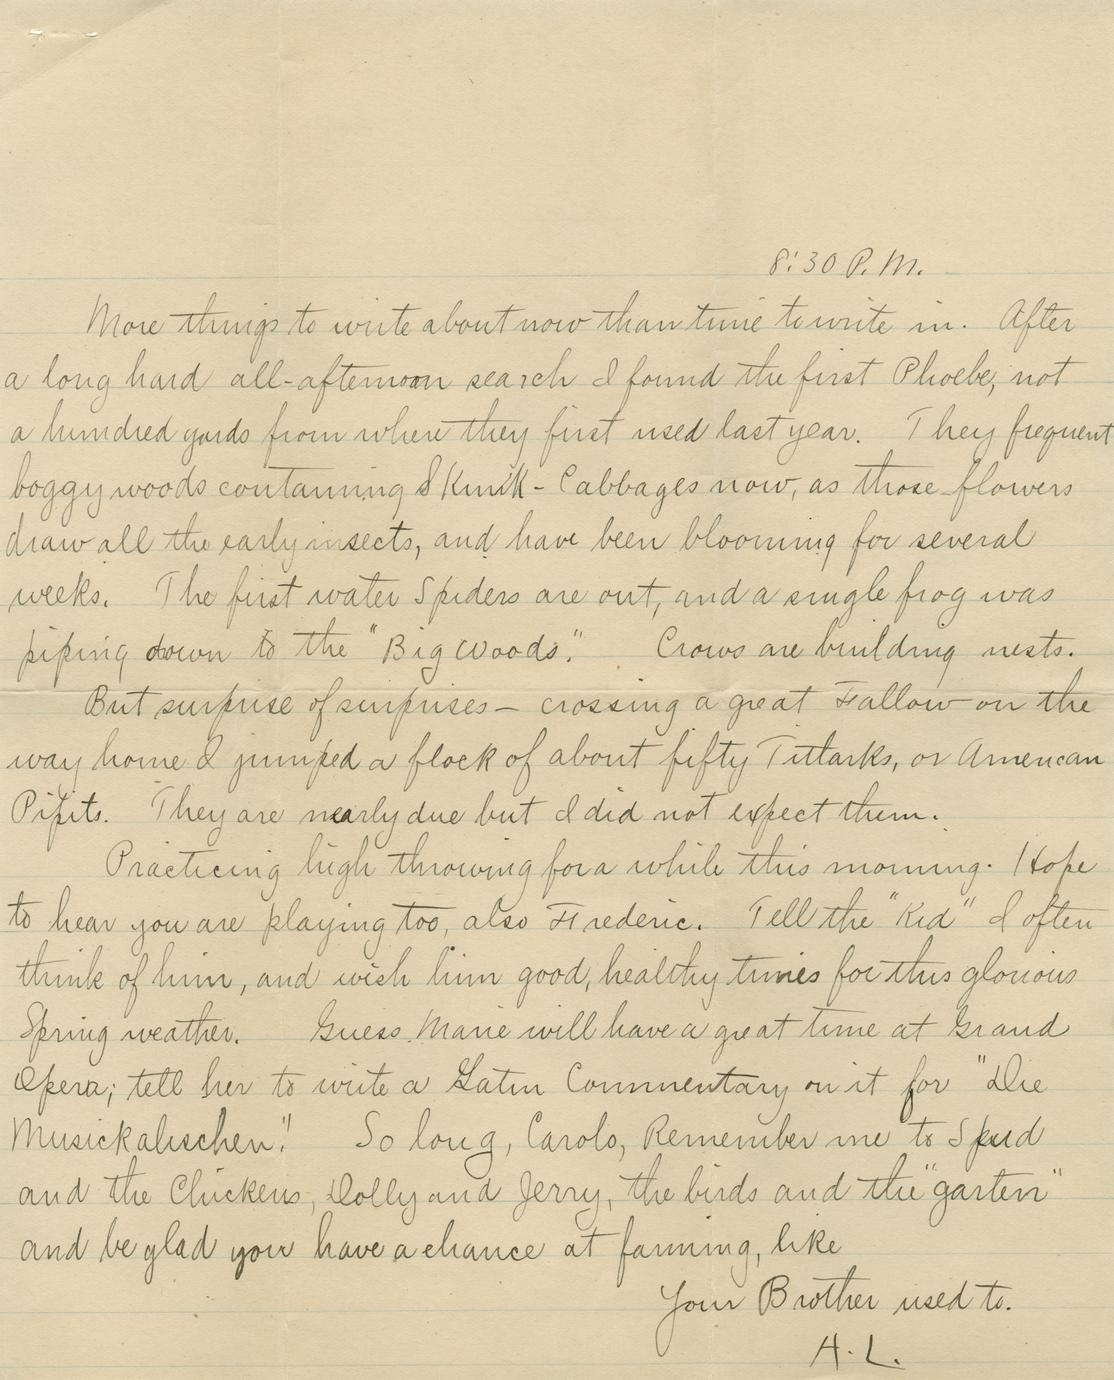 8:30 P.M.
More things to write about now than time to write in. After
a long hard all-afternoon search I found the first Phoebe, not
a hundred yards from where they first used last year. They frequent
boggy woods containing Skunk-Cabbages now, as those flowers
draw all the early insects, and have been blooming for several
weeks. The first water Spiders are out, and a single frog was
piping down to the "Big Woods". Crows are building nests.
But surprise of surprises — crossing a great Fallow on the
way home I jumped a flock of about fifty Titlarks, or American
Pipits. They are nearly due but I did not expect them.
Practicing high throwing for a while this morning. Hope
to hear you are playing too, also Frederic. Tell the "Kid" I often
think of him, and wish him good, healthy times for this glorious
Spring weather. Guess Marie will have a great time at Grand
Opera; tell her to write a Latin Commentary on it for "Die
Musickalischen". So long, Carolo, Remember me to Spud
and the Chickens, Dolly and Jerry, the birds and the "garten"
and be glad you have a chance at farming, like
Your Brother used to.
A.L.